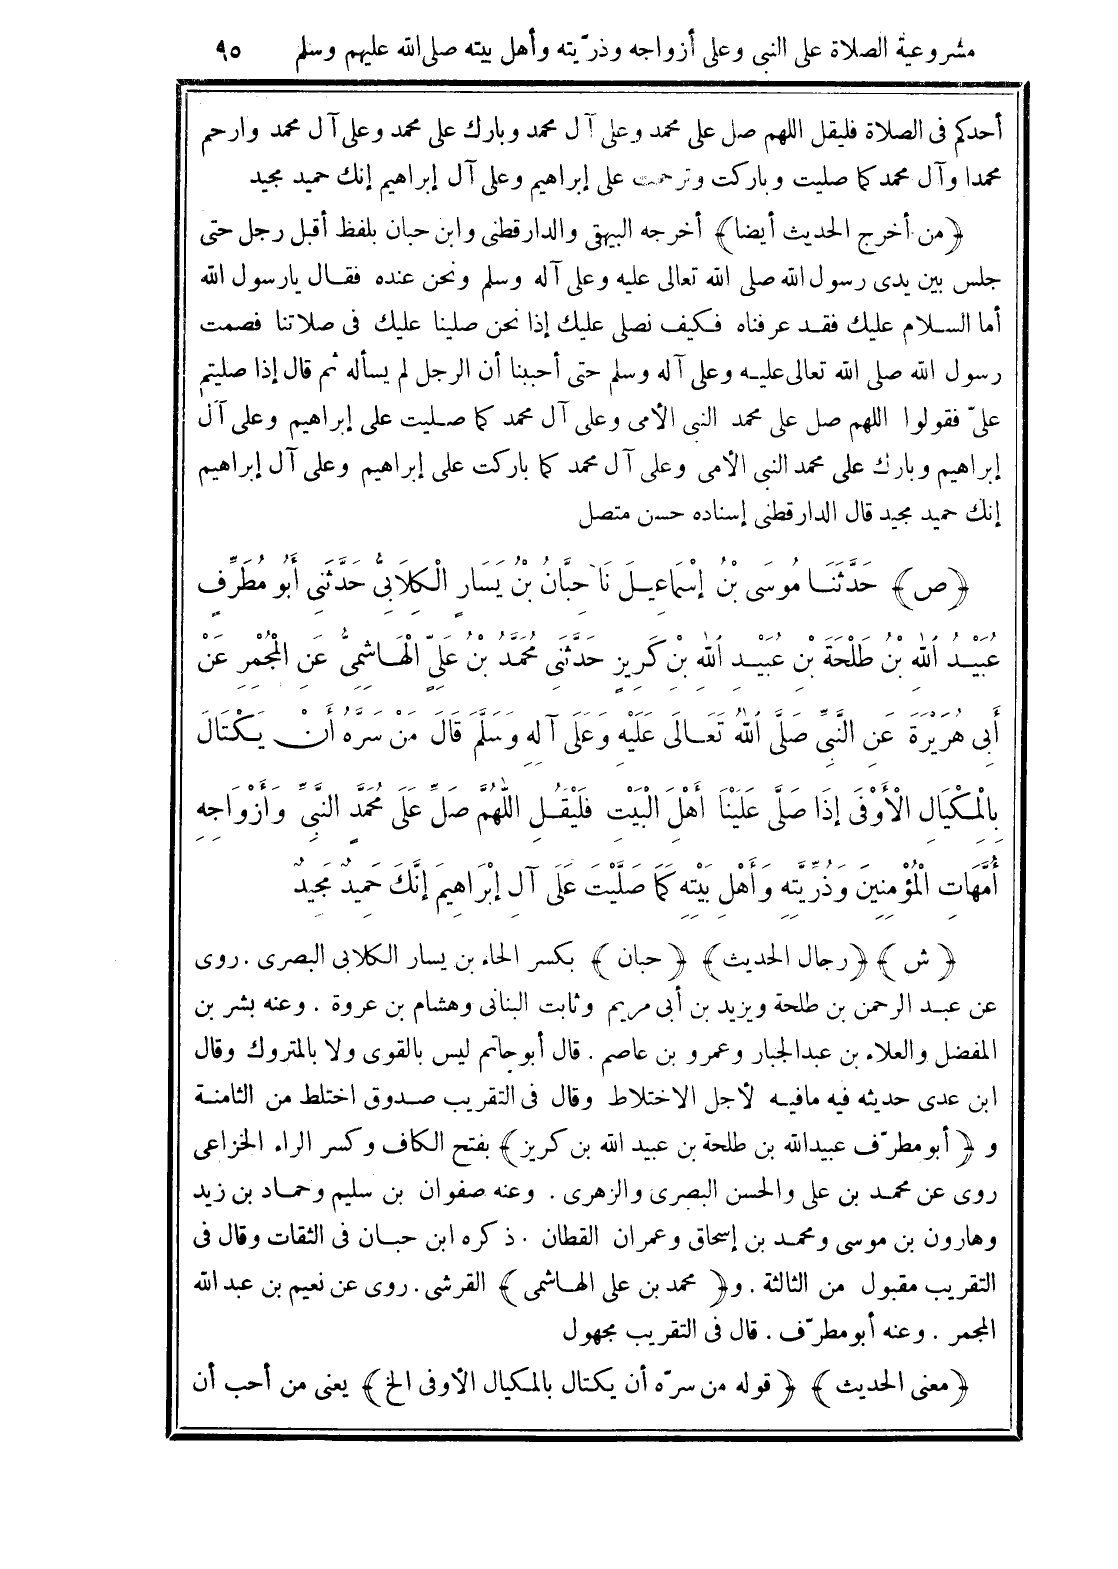 مشروعية الصلاة على النبى وعلى أزواجه وذرّيته وأهل بيته صلى الله عليهم وسلم ٩٥
أحدكم فى الصلاة فليقل اللهم صل على محمد وعلى آل محمد وبارك على محمد وعلى آل محمد وارحم
محمدا وآل محمد كما صليت وباركت وترحمت على إبراهيم وعلى آل إبراهيم إنك حميد مجيد
﴿من أخرج الحديث أيضا﴾ أخرجه البيهقى والدارقطنى وابن حبان بلفظ أقبل رجل حتى
جلس بين يدى رسول الله صلى الله تعالى عليه وعلى آله وسلم ونحن عنده فقال يارسول الله
أما السلام عليك فقد عرفناه فكيف نصلى عليك إذا نحن صلينا عليك فى صلاتنا فصمت
رسول الله صلى الله تعالى عليه وعلى آله وسلم حتى أحببنا أن الرجل لم يسأله ثم قال إذا صليتم
علىّ فقولوا اللهم صل على محمد النبى الأمى وعلى آل محمد كما صليت على إبراهيم وعلى آل
إبراهيم وبارك على محمد النبى الأمى وعلى آل محمد كما باركت على إبراهيم وعلى آل إبراهيم
إنك حميد مجيد قال الدارقطنى إسناده حسن متصل
﴿ص﴾ حَدَّثَنَا مُوسَى بْنُ إِسْمَاعِيلَ نَا حِبَّانُ بْنُ يَسَارٍ الْكِلَابِىُّ حَدَّثَنِى أَبُو مُطَرِّفٍ
عُبَيْدُ اللهِ بْنُ طَلْحَةَ بْنِ عُبَيْدِ اللهِ بْنِ كَرِيزٍ حَدَّثَنِى مُحَمَّدُ بْنُ عَلِىٍّ الْهَاشِمِىُّ عَنِ الْمُجْمِرِ عَنْ
أَبِى هُرَيْرَةَ عَنِ النَّبِىِّ صَلَّى اللهُ تَعَالَى عَلَيْهِ وَعَلَى آلِهِ وَسَلَّمَ قَالَ مَنْ سَرَّهُ أَنْ يَكْتَالَ
بِالْمِكْيَالِ الْأَوْفَى إِذَا صَلَّى عَلَيْنَا أَهْلَ الْبَيْتِ فَلْيَقُلِ اللَّهُمَّ صَلِّ عَلَى مُحَمَّدٍ النَّبِىِّ وَأَزْوَاجِهِ
أُمَّهَاتِ الْمُؤْمِنِينَ وَذُرِّيَّتِهِ وَأَهْلِ بَيْتِهِ كَمَا صَلَّيْتَ عَلَى آلِ إِبْرَاهِيمَ إِنَّكَ حَمِيدٌ مَجِيدٌ
﴿ش﴾ ﴿رجال الحديث﴾ ﴿حبان﴾ بكسر الحاء بن يسار الكلابى البصرى . روى
عن عبد الرحمن بن طلحة ويزيد بن أبى مريم وثابت البنانى وهشام بن عروة . وعنه بشر بن
المفضل والعلاء بن عبدالجبار وعمرو بن عاصم . قال أبوحاتم ليس بالقوى ولا بالمتروك وقال
ابن عدى حديثه فيه مافيه لأجل الاختلاط وقال فى التقريب صدوق اختلط من الثامنة
و ﴿أبومطرّف عبيدالله بن طلحة بن عبيد الله بن كريز﴾ بفتح الكاف وكسر الراء الخزاعى
روى عن محمد بن على والحسن البصرى والزهرى . وعنه صفوان بن سليم وحماد بن زيد
وهارون بن موسى ومحمد بن إسحاق وعمران القطان . ذكره ابن حبان فى الثقات وقال فى
التقريب مقبول من الثالثة . و﴿محمد بن على الهاشمى﴾ القرشى . روى عن نعيم بن عبد الله
المجمر . وعنه أبومطرّف . قال فى التقريب مجهول
﴿معنى الحديث﴾ ﴿قوله من سرّه أن يكتال بالمكيال الأوفى الخ﴾ يعنى من أحب أن